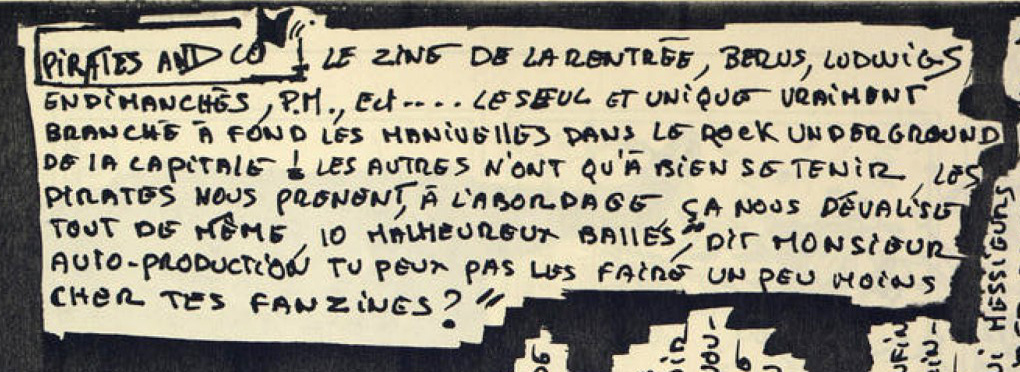 PIRATES AND CO ! LE ZINE DE LA RENTRÉE, BERUS, LUDWIGS,
ENDIMANCHÉS, P.M., Ect.... LE SEUL ET UNIQUE VRAIMENT
BRANCHÉ À FOND LES MANIVELLES DANS LE ROCK UNDERGROUND
DE LA CAPITALE ! LES AUTRES N'ONT QU'À BIEN SE TENIR, LES
PIRATES NOUS PRENENT, À L'ABORDAGE, ÇA NOUS DÉVALISE
TOUT DE MÊME, 10 MALHEUREUX BALLES," DIT MONSIEUR
AUTO-PRODUCTION, TU PEUX PAS LES FAIRE UN PEU MOINS
CHER TES FANZINES ? "
MESSIEURS